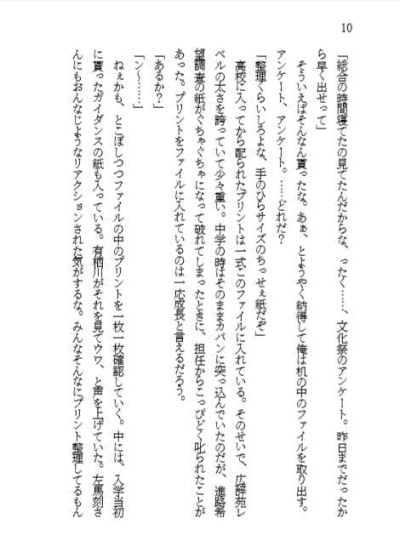 10
「総合の時間寝てたの見てたんだからな。ったく……、文化祭のアンケート。昨日までだったか
ら早く出せって」
そういえばそんなん貰ったな。あぁ、とようやく納得して俺は机の中のファイルを取り出す。
アンケート、アンケート。……どれだ？
「整理くらいしろよな、手のひらサイズのちっせぇ紙だぞ」
高校に入ってから配られたプリントは一式このファイルに入れている。そのせいで、広辞苑レ
ベルの太さを誇っていて少々重い。中学の時はそのままカバンに突っ込んでいたのだが、進路希
望調査の紙がぐちゃぐちゃになって破れてしまったときに、担任からこっぴどく叱られたことが
あった。プリントをファイルに入れているのは一応成長と言えるだろう。
「あるか？」
「ン〜……」
ねぇかも、とこぼしつつファイルの中のプリントを一枚一枚確認していく。中には、入学当初
に貰ったガイダンスの紙も入っている。有栖川がそれを見てウワ、と声を上げていた。左馬刻さ
んにもおんなじようなリアクションされた気がするな。みんなそんなにプリント整理してるもん